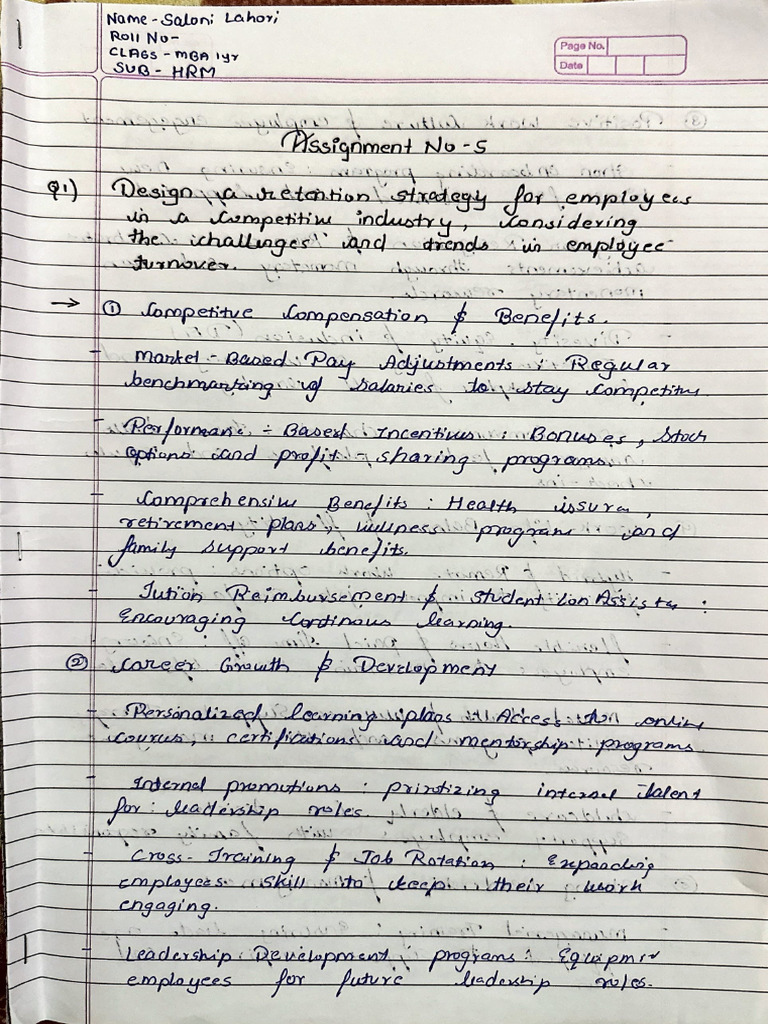 Name - Saloni Lahori
Roll No -
CLASS - MBA 1yr
SUB - HRM
Page No.
Date
Assignment No - 5
Q1) Design a retention strategy for employees
in a competitive industry, considering
the challenges and trends in employee
turnover.
→ ① Competitive Compensation & Benefits.
- Market - Based Pay Adjustments : Regular
benchmarking of salaries to stay competitive
- Performance - Based Incentives : Bonuses, stock
options and profit - sharing programs.
- Comprehensive Benefits : Health
retirement plans, wellness program and
family support benefits.
- Tution Reimbursement & student :
Encouraging continous learning.
② Career Growth & Development
- Personalized learning plans Access to online
courses, certifications and mentorship programs.
- Internal promotions : priotizing internal talent
for leadership roles.
- Cross - Training & Job Rotation : Expanding
employees skill to keep their work
engaging.
- Leadership Development programs :
employees for future leadership roles.